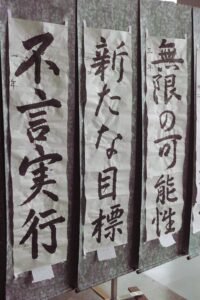 無限の可能性
新たな目標
不言実行